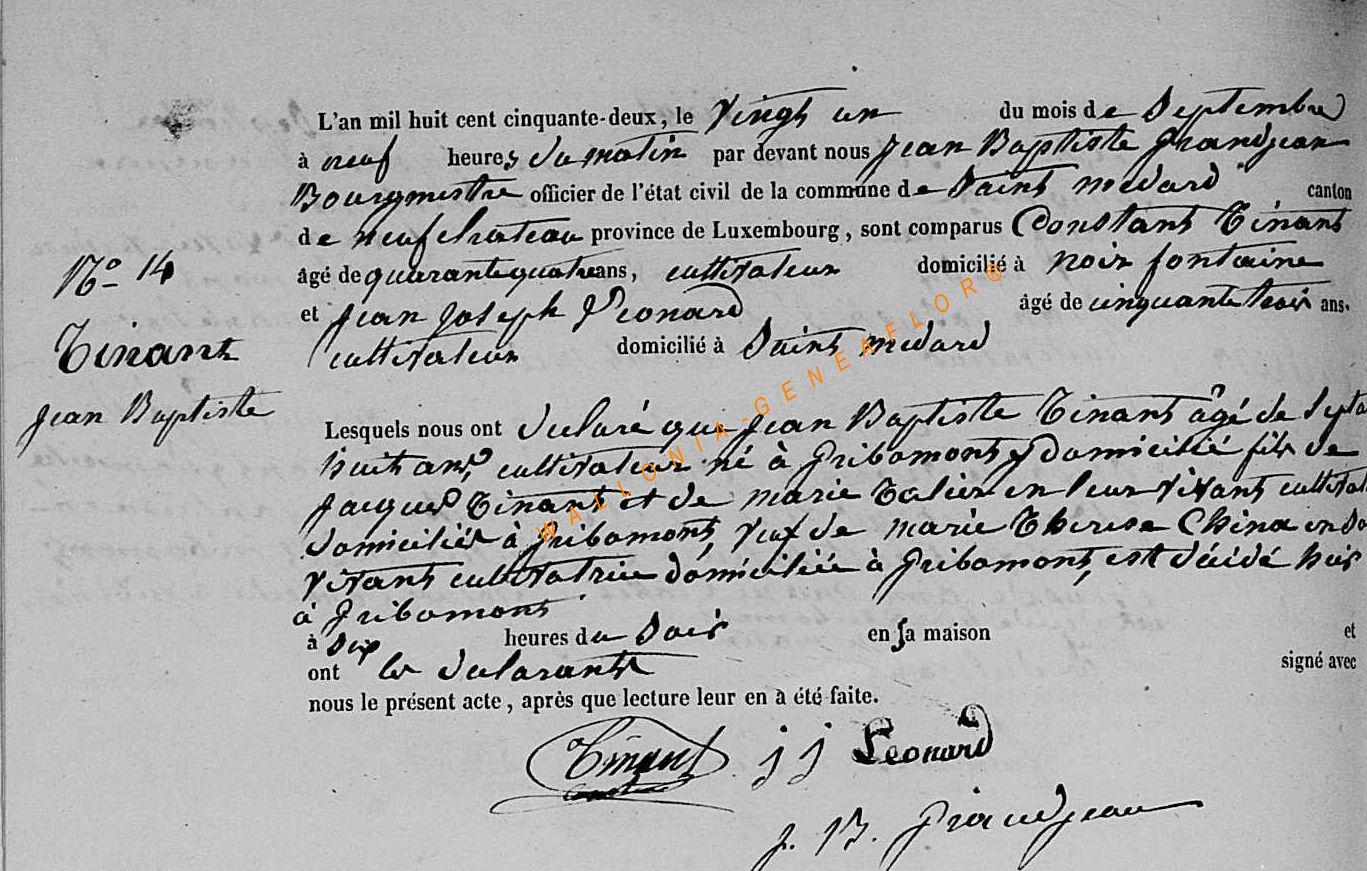 L'an mil huit cent cinquante-deux, le vingt un du mois de Septembre
à neuf heures du matin par devant nous Jean Baptiste Grandjean
Bourgmestre officier de l'état civil de la commune de Saint médard canton
de neufchateau province de Luxembourg, sont comparus Constant Tinant
N° 14
âgé de quarante quatre ans, cultivateur domicilié à noir fontaine
et Jean Joseph Léonard âgé de cinquante trois ans.
Tinant
cultivateur domicilié à Saint médard
Jean Baptiste
Lesquels nous ont déclaré que Jean Baptiste Tinant âgé de
huit ans, cultivateur né à Gribomont y domicilié fils de
Jacques Tinant et de marie en leur vivant
domiciliés à Gribomont, veuf de marie Therese China en
vivant cultivatrice domiciliée à Gribomont, est décédé hier
à Gribomont
à dix heures du Soir en sa maison et
ont les déclarants signé avec
nous le présent acte, après que lecture leur en à été faite.
Tinant
j j Leonard
J. B. Grandjean
WALLONIA-GENEAFLOR©